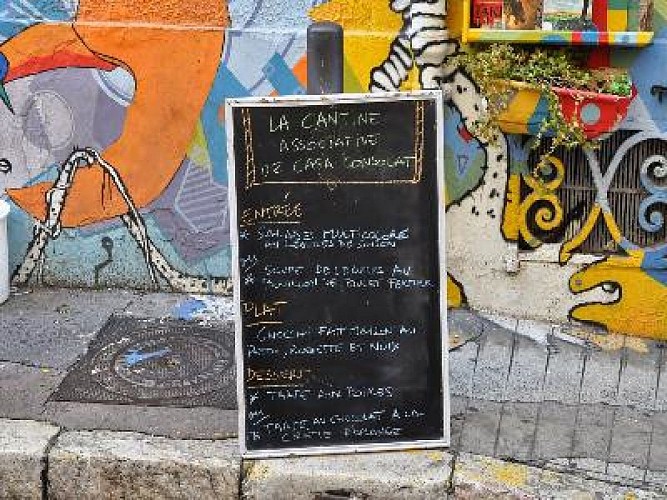 LA CANTINE
ASSOCIATIVE
DE CASA CONSOLAT
ENTRÉE
MULTICOLORE
AU LÉGUMES DE SAISON
SOUPE DE LÉGUMES AU
BOUILLON DE POULET FERMIER
PLAT
GNOCCHI FAIT MAISON AU
ROQUETTE ET NOIX
DESSERT
TARTE AUX POIRES
TARTE AU CHOCOLAT À LA
D'ORANGE